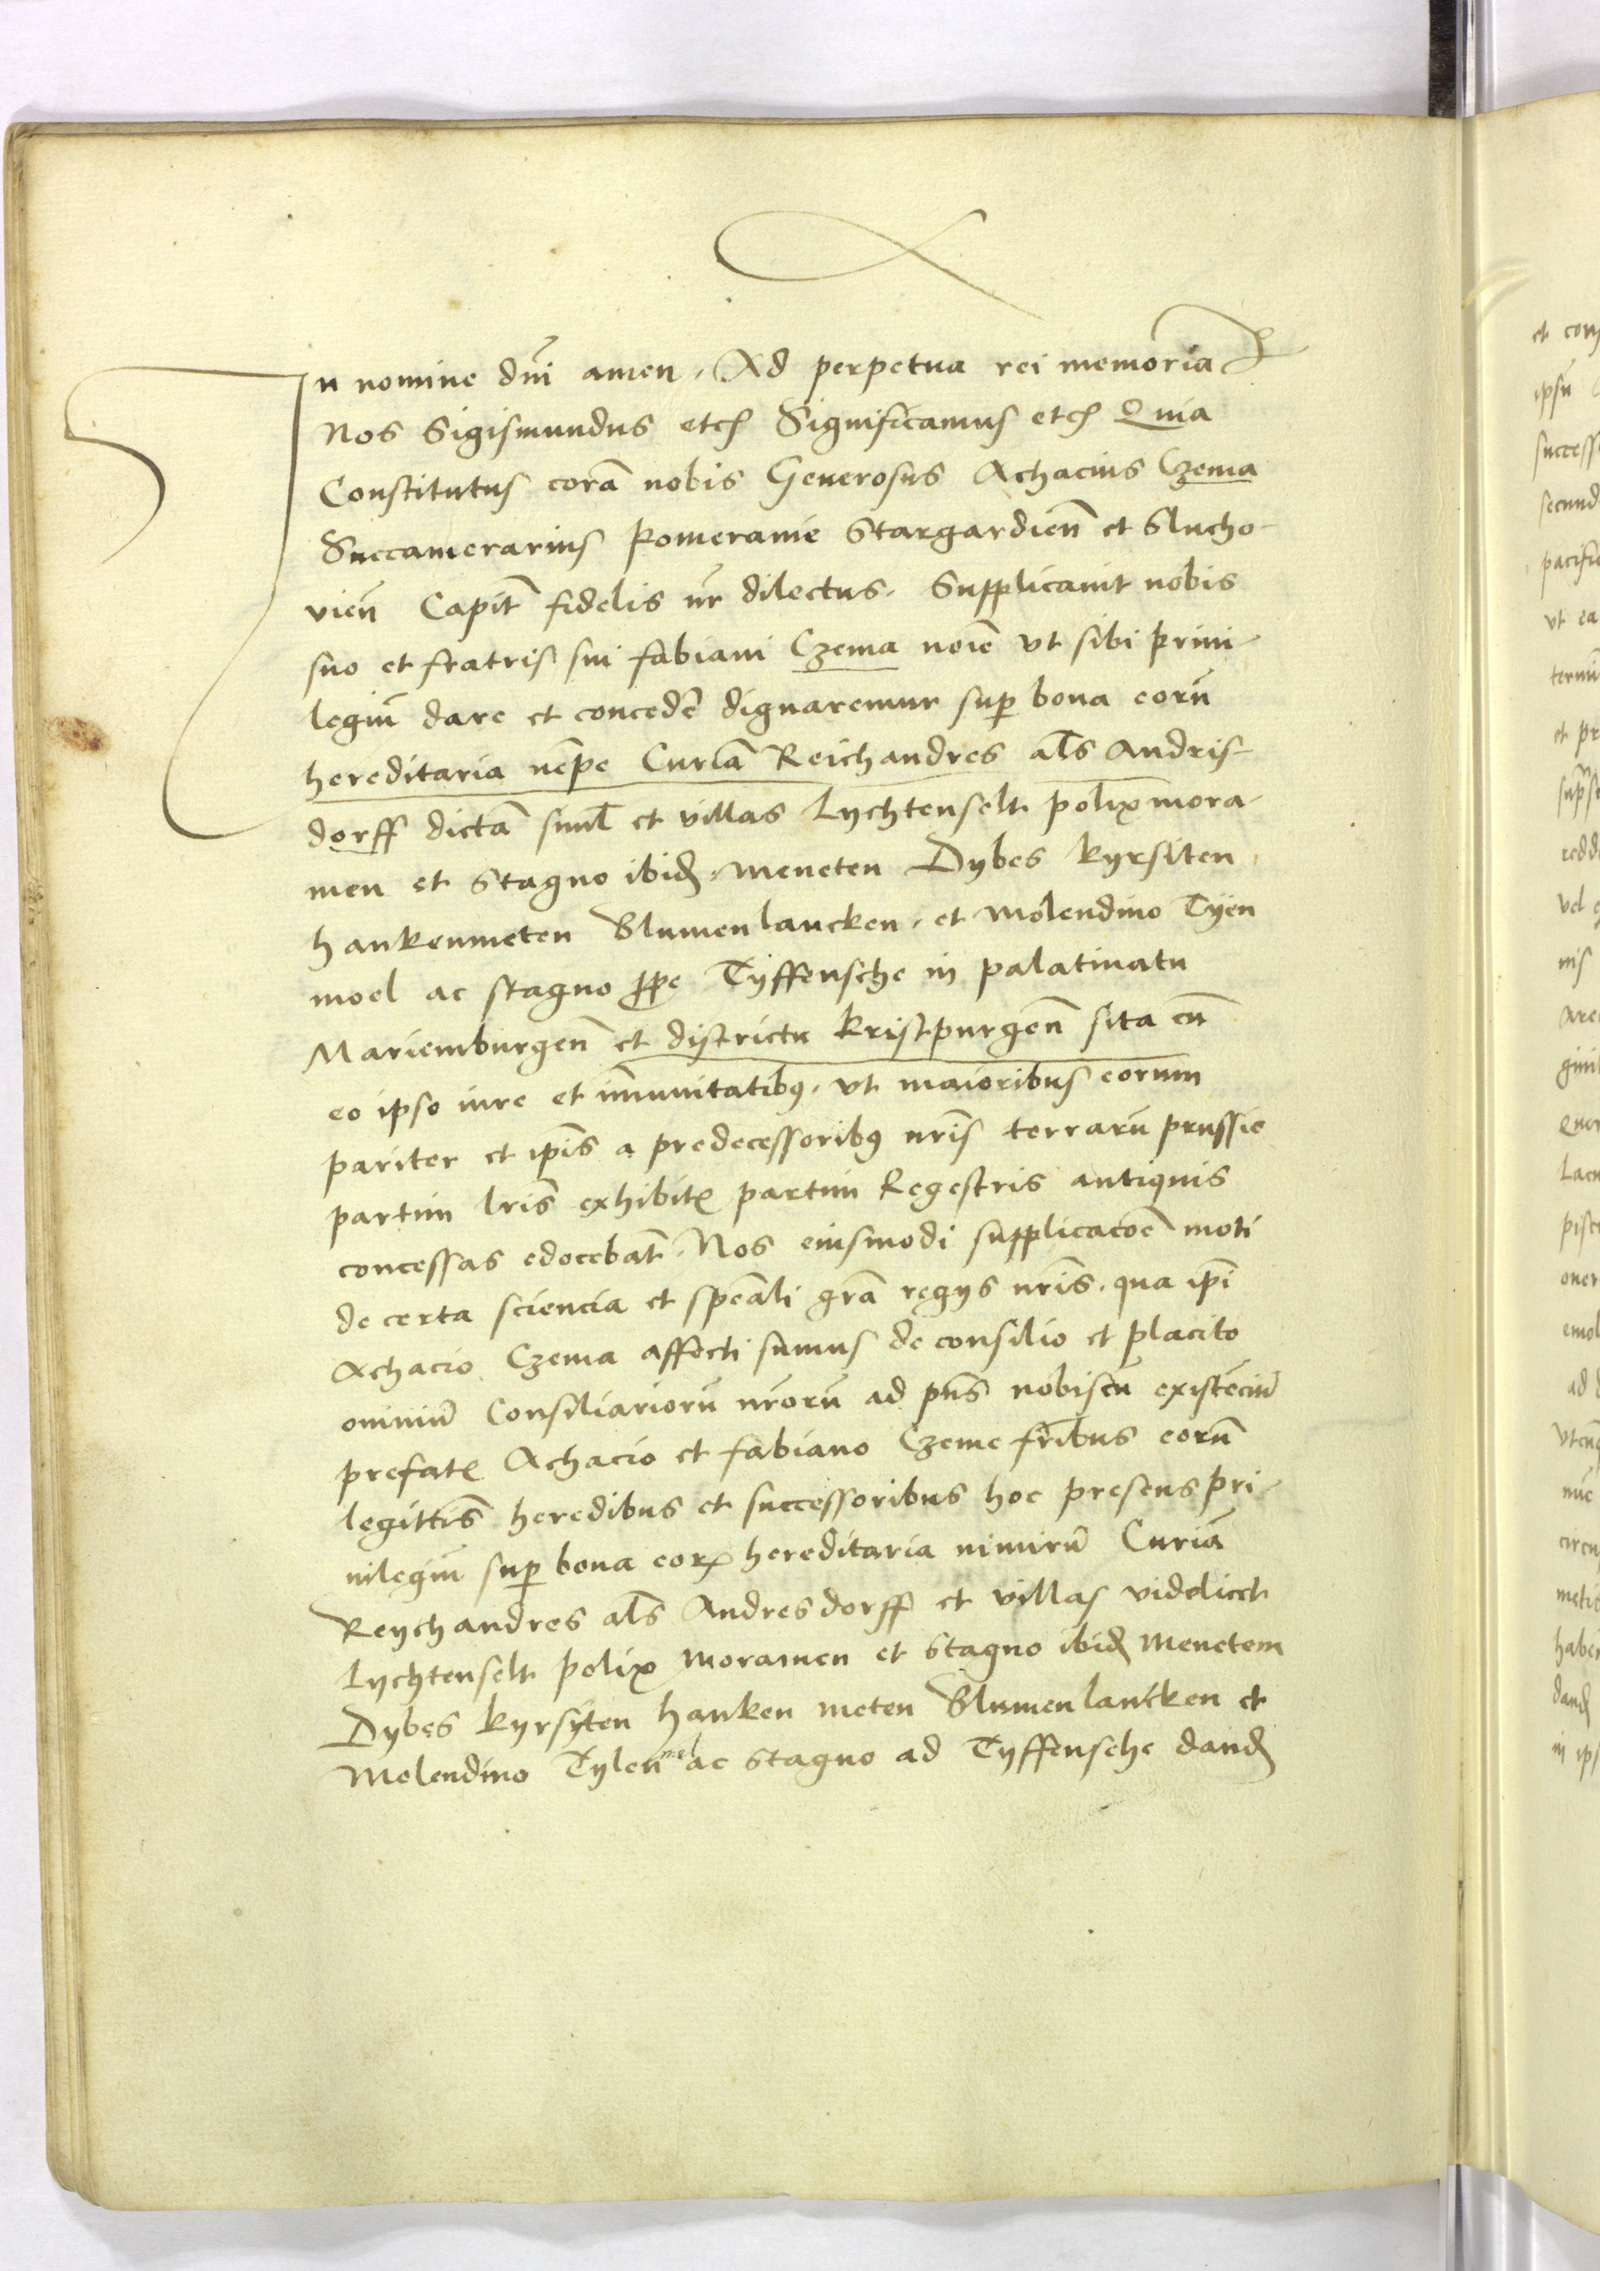 In nomine dn̄i amen. Ad perpetua rei memoriā
Nos Sigismundus etc̄ Significamus etc̄ Quia
Constitutus corā nobis Generosus Achacius Czema
Succamerarius Pomeranie Stargardien̄ et Slucho-
vien̄ Capit̄ fidelis nr̄ dilectus. Supplicavit nobis
suo et fratris sui fabiani Czema noīe vt sibi privi-
legiū dare et concedē dignaremur sup̱ bona eorū
hereditaria nēpe Curiā Reichandres al̄s Andris-
dorff dictā simul̄ et villas Lychtenfelt polixmora-
men et Stagno ibid̄. Meneten Dybes kyrsiten
hankenmeten Blumenlancken. et Molendino Tyen
moel ac stagno ꝓpe Tyffensehe in palatinatu
Mariemburgen̄ et districtu kristpurgen̄ sita cū
eo ipso iure et īmunitatibꝰ. vt maioribus eorum
pariter et ip̄is a predecessoribꝰ nr̄is terrarū prussie
partim lr̄is exhibitꝭ partim Regestris antiquis
concessas edocebat̄. Nos eiusmodi supplicacōe moti
de certa sciencia et spēali gr̄a regys nr̄is. qua ip̄i
Achacio Czema affecti sumus de consilio et placito
omniū Consiliariorū nr̄orū ad pn̄s nobiscū existēciū
prefatꝭ Achacio et fabiano Czeme fr̄ibus eorū
legittīs heredibus et successoribus hoc presens pri-
vilegiū sup̱ bona eoꝝ hereditaria nimirū Curiā
Reychandres al̄s Andresdorff et villas videlicet
Lychtenfelt polix moramen et Stagno ibid̄ Menetem
Dybes kyrsyten hanken meten Blumenlancken et
Molendino Tylen mel ac Stagno ad Tyffensehe dand̄
et con
ipsū
success
secund
pacific
vt ea
et pr
redd
vel
nis
ad
nūc
circu
metis
habe
dand̄
in ips